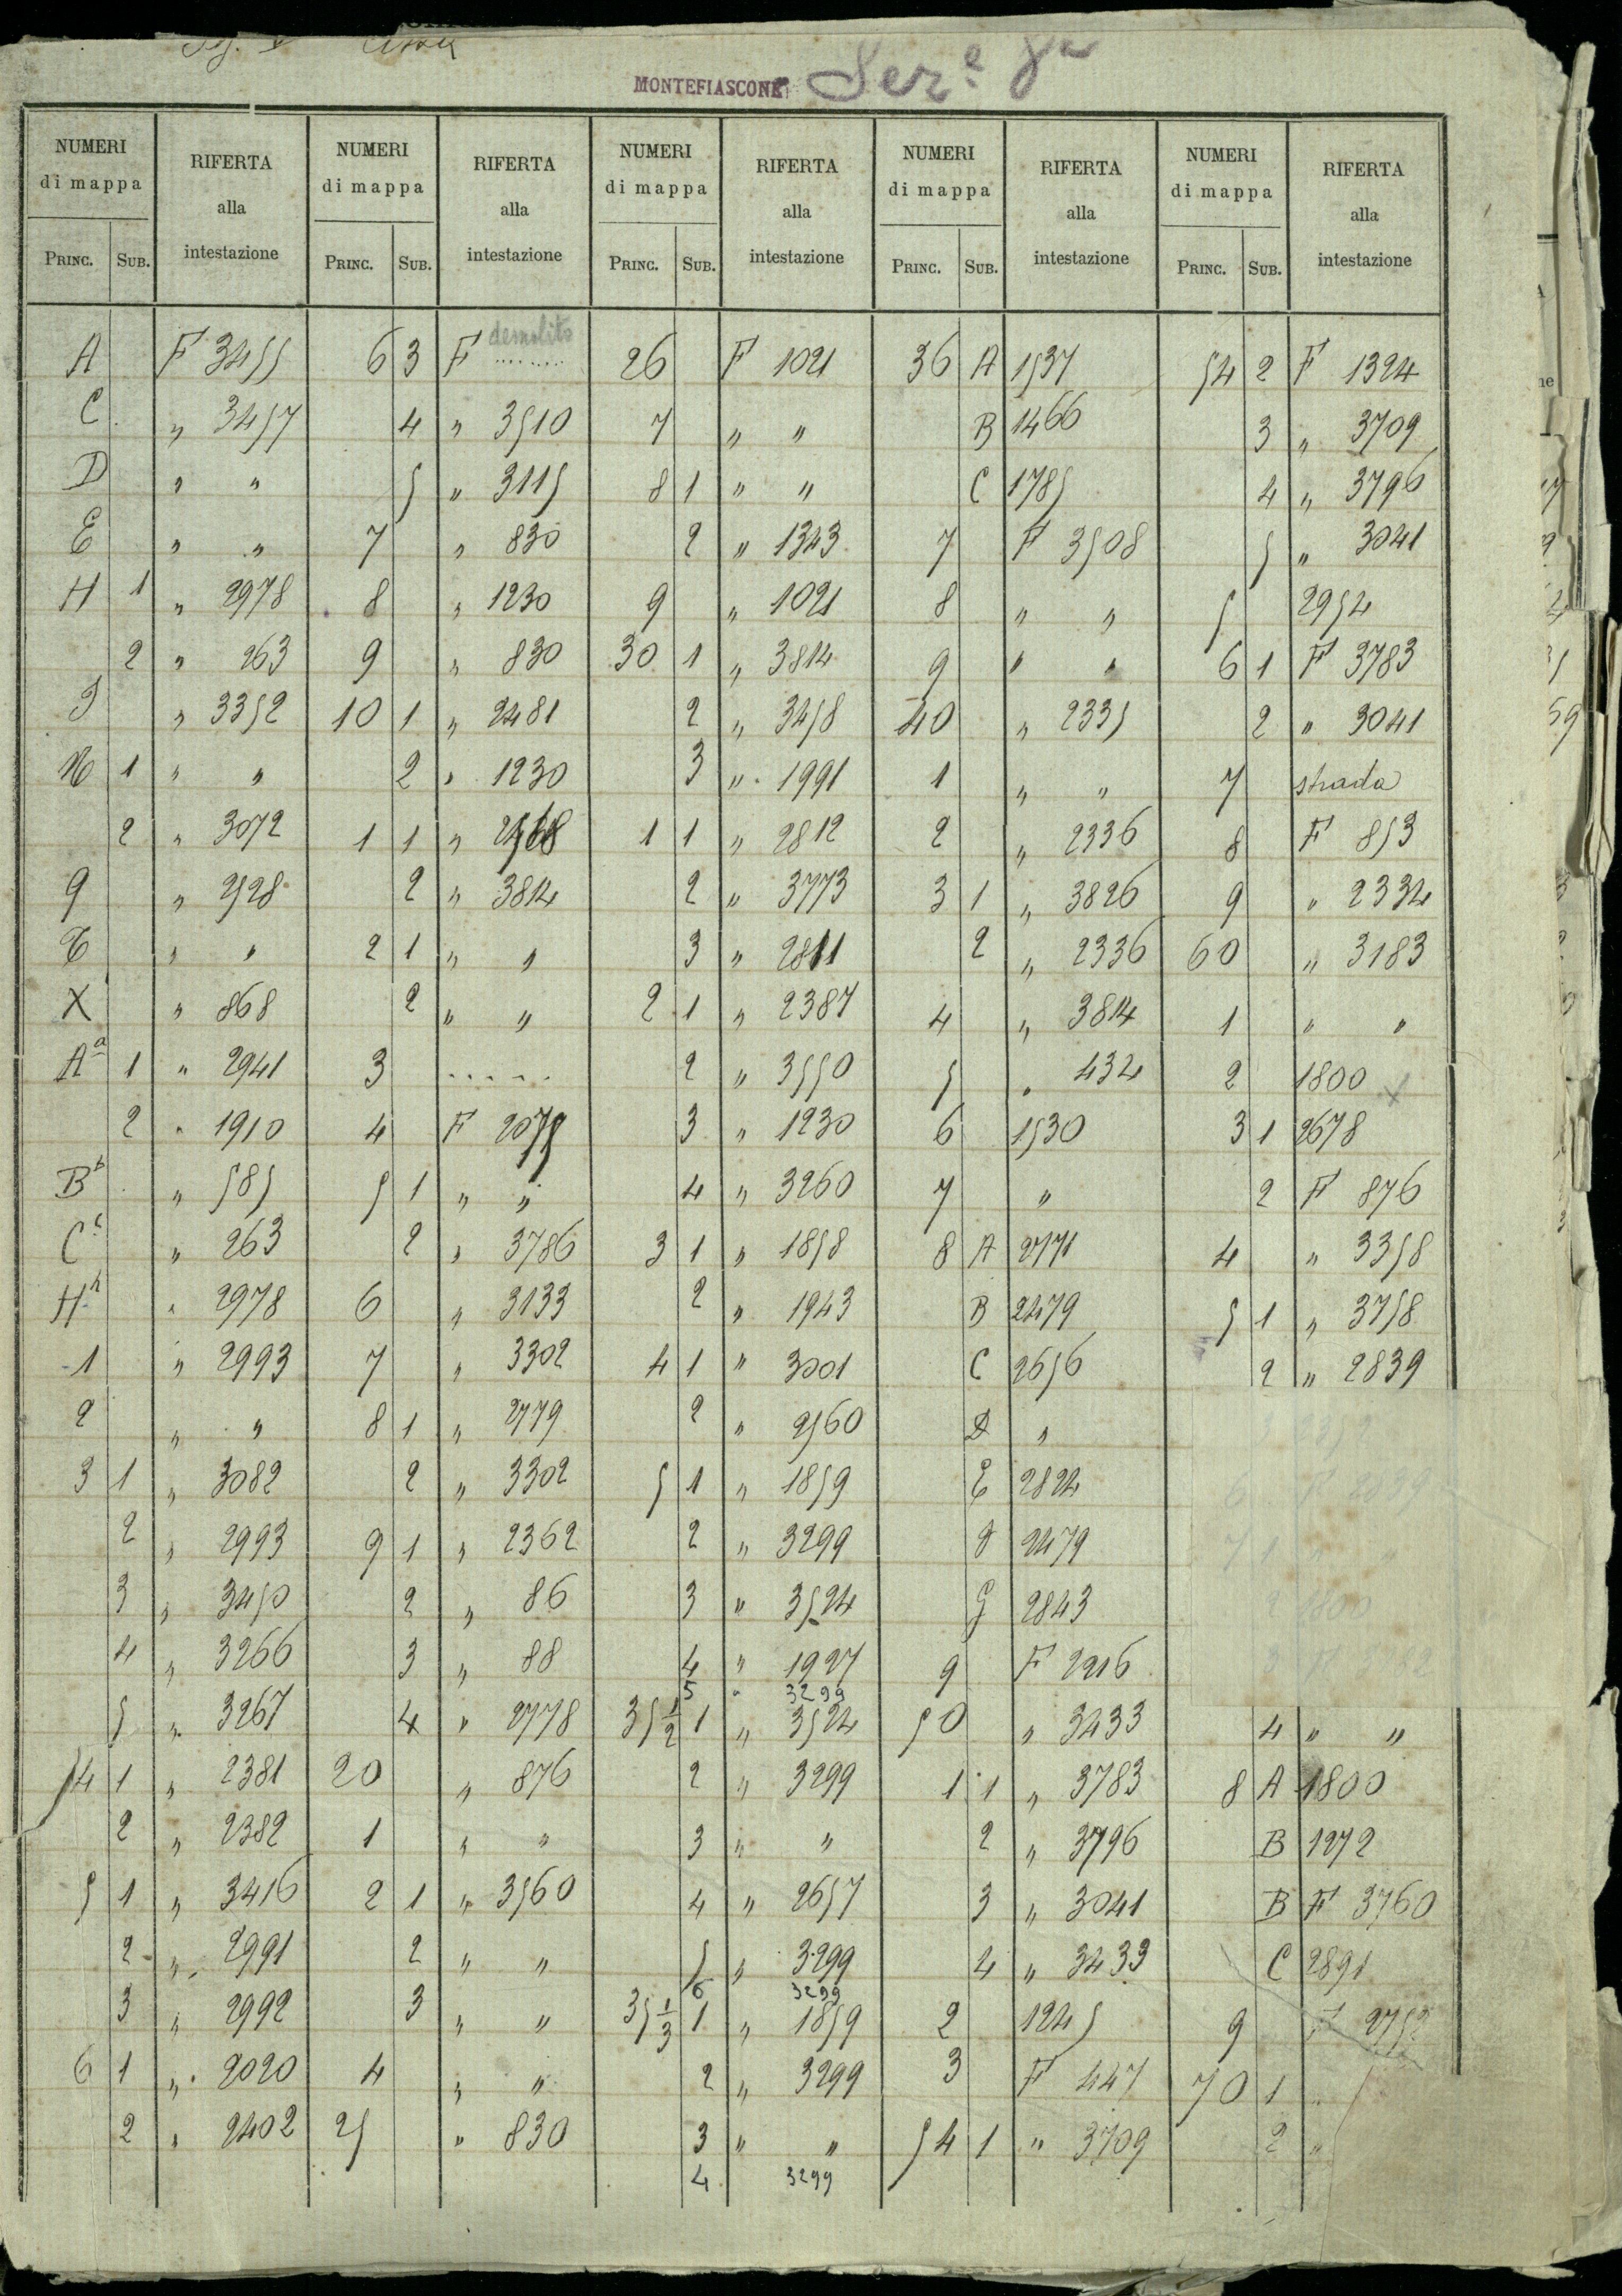 MONTEFIASCONE Ser.e
NUMERI di mappa RIFERTA alla intestazione NUMERI di mappa RIFERTA alla intestazione NUMERI di mappa RIFERTA alla intestazione NUMERI di mappa RIFERTA alla intestazione NUMERI di mappa RIFERTA alla intestazione
PRINC. SUB. PRINC. SUB. PRINC. SUB. PRINC. SUB. PRINC. SUB.
demolito
A F 3455 6 3 F ........ 26 F 1021 36 A 1537 54 2 F 1324
C " 3457 4 " 3510 7 " " B 1466 3 " 3709
D " " 5 " 3115 8 1 " " C 1785 4 " 3796
E " " 7 " 830 2 " 1343 7 F 3508 5 " 3041
H 1 " 2978 8 " 1230 9 " 1021 8 " " 5 2954
2 " 263 9 " 830 30 1 " 3814 9 " " 6 1 F 3783
" 3352 10 1 " 2481 2 " 3458 40 " 2335 2 " 3041
1 " " 2 " 1230 3 " 1991 1 " " 7 strada
2 " 3072 1 1 " 1 1 " 2812 2 " 2336 8 F 853
9 " 2528 2 " 3814 2 " 3773 3 1 " 3826 9 " 2334
" " 2 1 " " 3 " 2811 2 " 2336 60 " 3183
X " 868 2 " " 2 1 " 2387 4 " 3814 1 " "
Aa 1 " 2941 3 ..... 2 " 3550 5 " 434 2 1800
2 " 1910 4 F 2075 3 " 1230 6 1530 3 1 2678
Bb " 585 5 1 " " 4 " 3260 7 " 2 F 876
Cc " 263 2 " 3786 3 1 " 1858 8 A 2771 4 " 3358
Hh " 2978 6 " 3133 2 " 1943 B 2479 5 1 " 3758
1 " 2993 7 " 3302 4 1 " 3001 C 2656 2 " 2839
2 " " 8 1 " 2779 2 " 2560 D "
3 1 " 3082 2 " 3302 5 1 " 1859 E 2824
2 " 2993 9 1 " 2362 2 " 3299 2479
3 " 3450 2 " 86 3 " 3524 G 2843
4 " 3266 3 " 88 4 " 1927 9 F 2216
5 " 3299
5 " 3267 4 " 2778 35 1/2 1 " 3524 50 " 3433 4 " "
4 1 " 2381 20 " 876 2 " 3299 1 1 " 3783 8 A 1800
2 " 2382 1 " " 3 " " 2 " 3796 B 1272
5 1 " 3416 2 1 " 3560 4 " 2657 3 " 3041 B F 3760
2 " 2991 2 " " 5 " 3299 4 " 3433 C 2891
6 3299
3 " 2992 3 " " 35 1/3 1 " 1859 2 1245 9 F 2752
6 1 " 2020 4 " " 2 " 3299 3 F 447 70 1 "
2 " 2402 25 " 830 3 " " 54 1 " 3709 2 "
4 3299